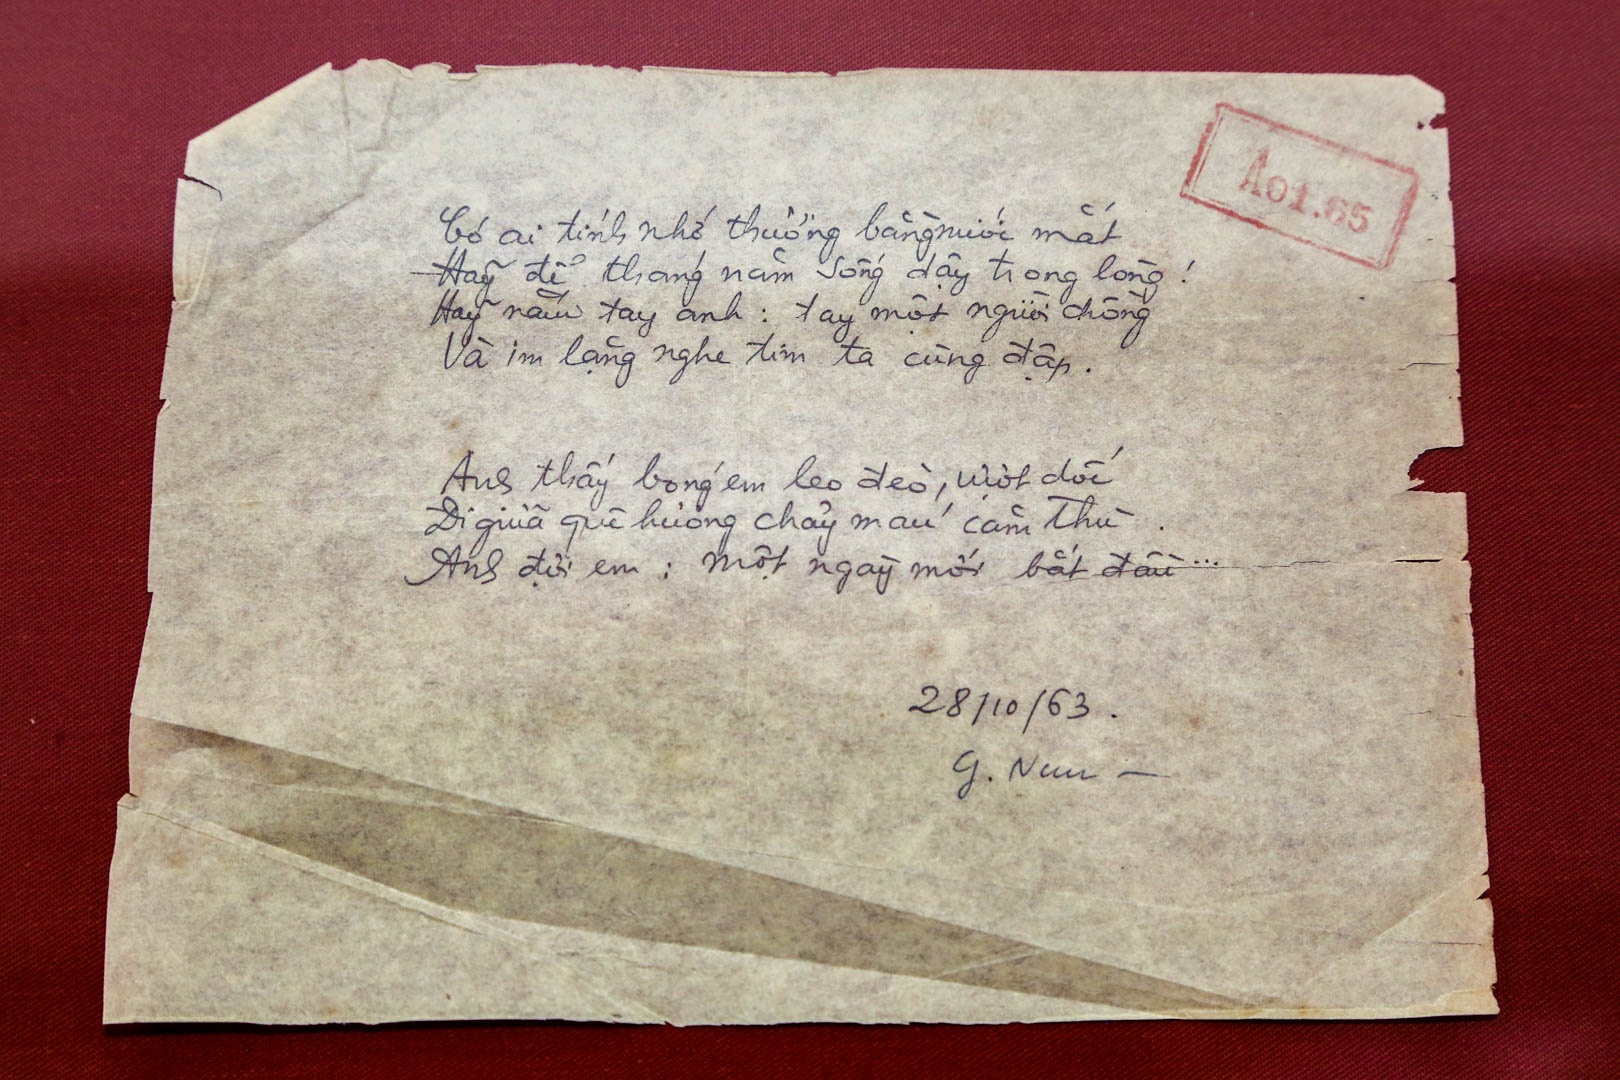 Ao1.65
Có ai tính nhớ thương bằng nước mắt
Hãy để tháng năm sống dậy trong lòng!
Hãy nắm tay anh: tay một người chồng
Và im lặng nghe tim ta cùng đập.
Anh thấy bóng em leo đèo, vượt dốc
Đi giữa quê hương chảy máu căm thù.
Anh đợi em: một ngày mới bắt đầu...
28/10/63.
G. Nam –